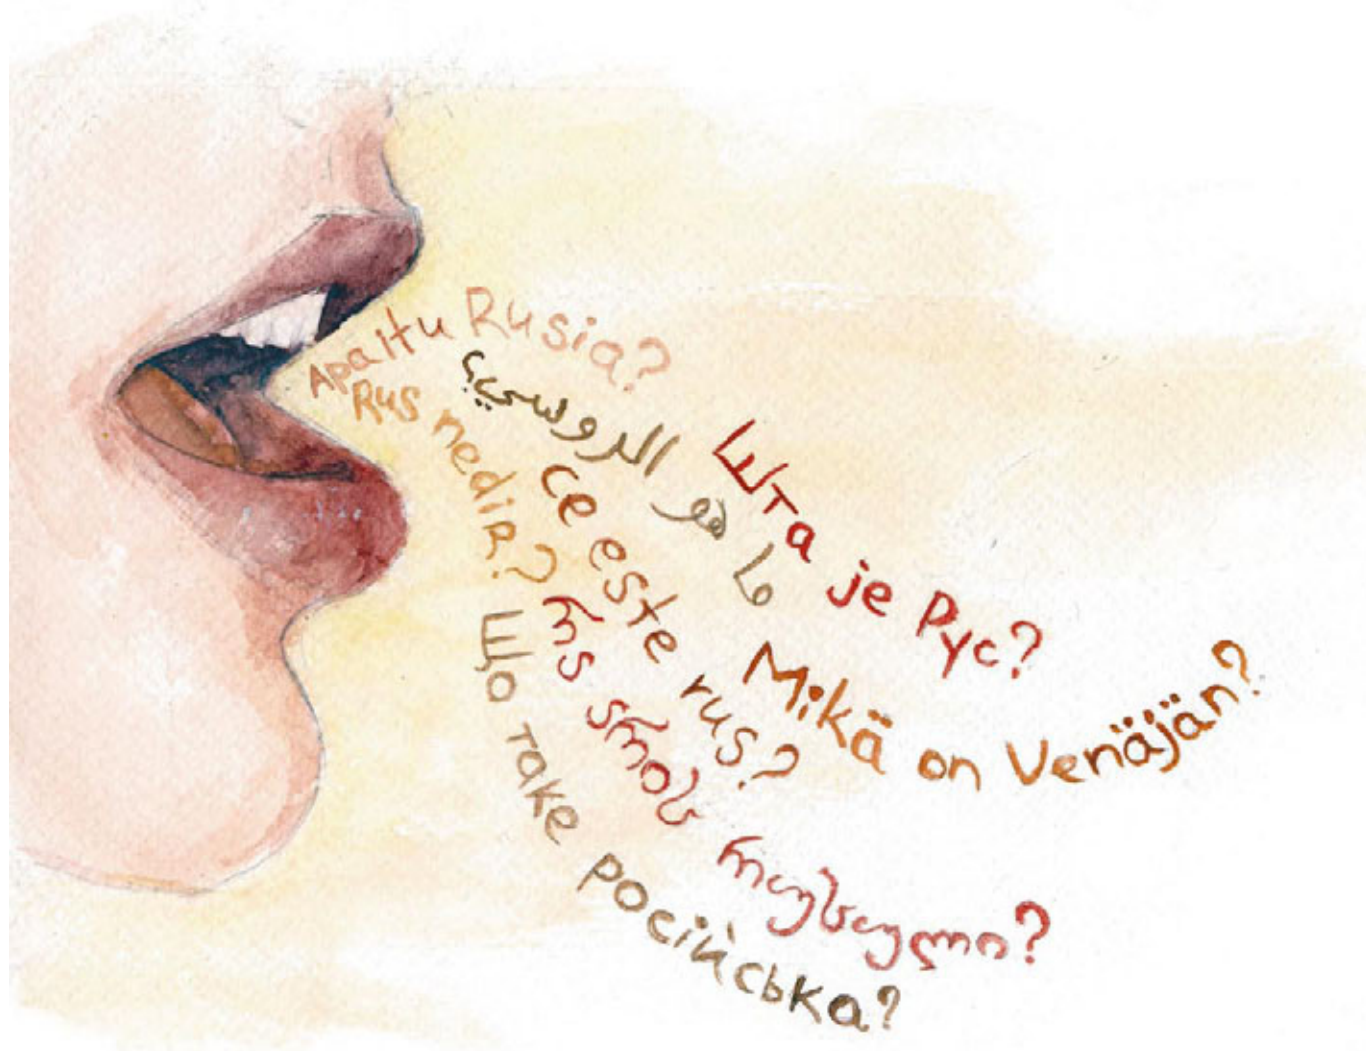 Apa itu Rusia?
Rus nedir?
ما هو الروسي؟
Шта је Рус?
Ce este rus?
Mikä on Venäjän?
რა არის რუსული?
Що таке російська?